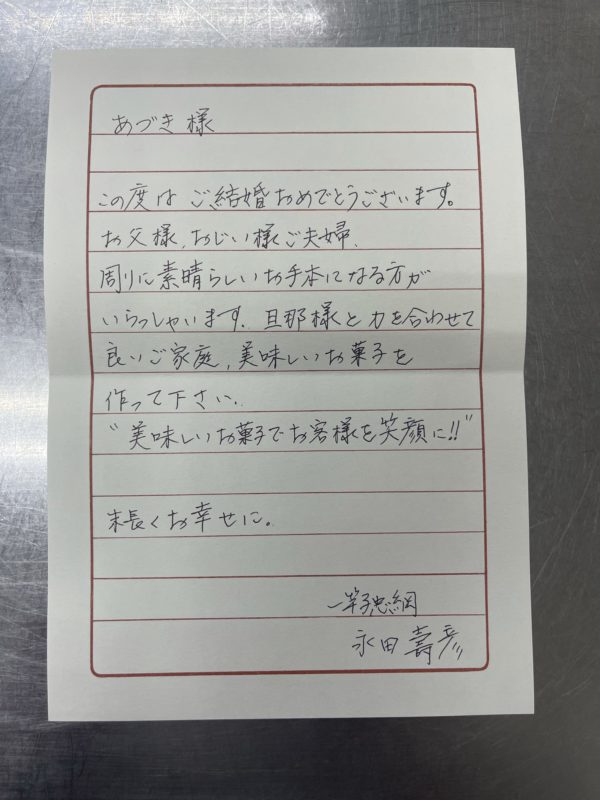 あづき様
この度はご結婚おめでとうございます。
お父様、おじい様ご夫婦、
周りに素晴らしいお手本になる方が
いらっしゃいます。旦那様と力を合わせて
良いご家庭、美味しいお菓子を
作って下さい。
"美味しいお菓子でお客様を笑顔に!!"
末長くお幸せに。
永田壽彦